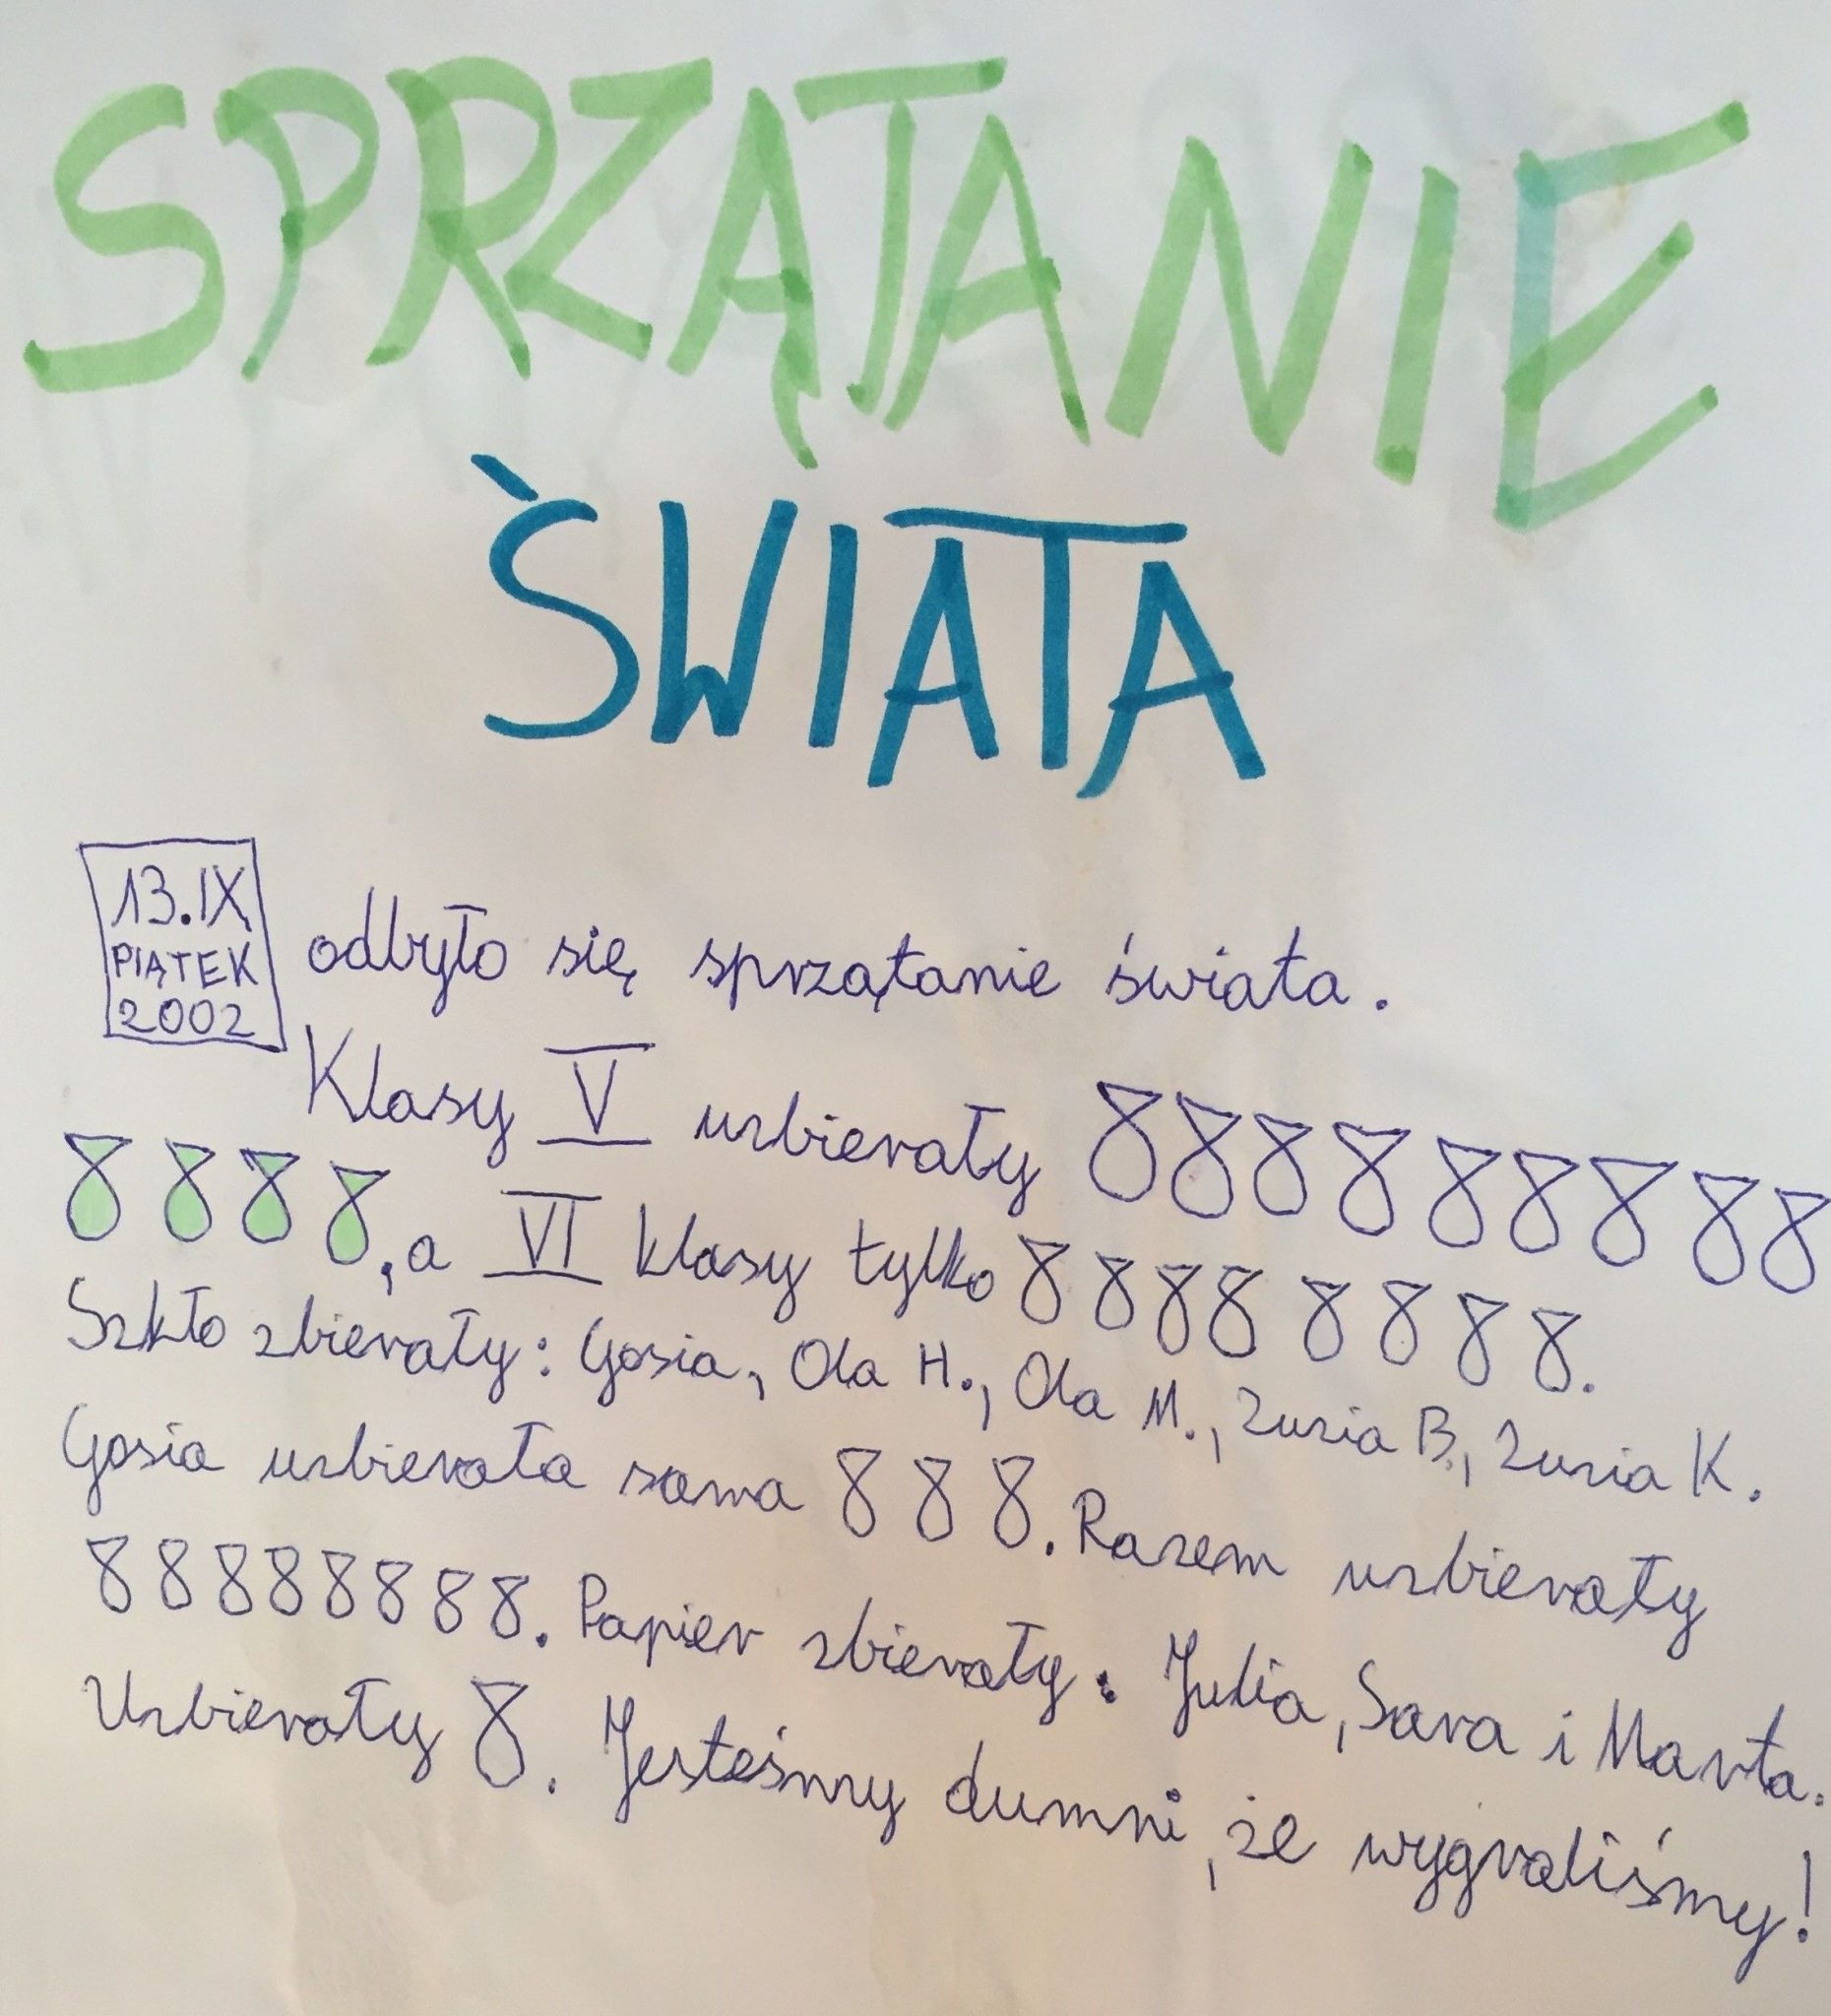 SPRZĄTANIE
ŚWIATA
13.IX
PIĄTEK
2002
odbyło się sprzątanie świata.
Klasy V uzbierały 8 8 8 8 8 8 8 8 8
8 8 8 8, a VI klasy tylko 8 8 8 8 8 8 8 8.
Szkło zbierały: Gosia, Ola H., Ola M., Zuzia B., Zuzia K.
Gosia uzbierała sama 8 8 8. Razem uzbierały
8 8 8 8 8 8 8 8. Papier zbierały: Julia, Sara i Marta.
Uzbierały 8. Jesteśmy dumni, że wygraliśmy!